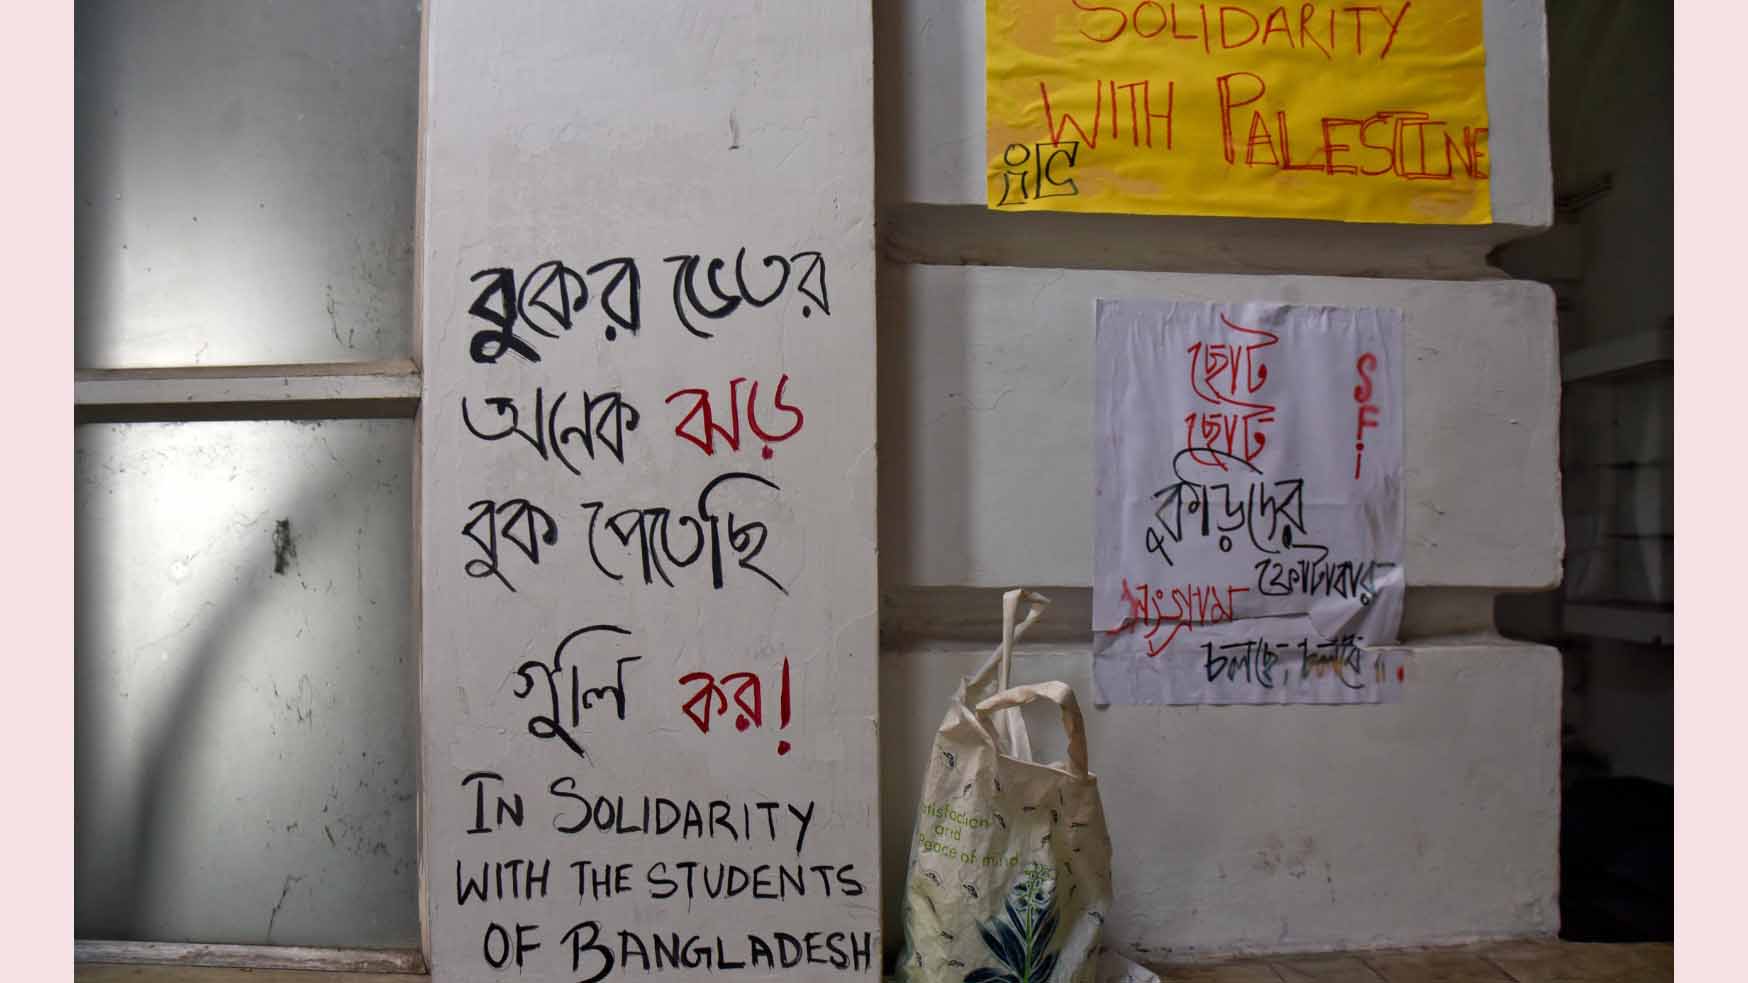 বুকের ভেতর
অনেক ঝড়
বুক পেতেছি
গুলি কর!
IN SOLIDARITY
WITH THE STUDENTS
OF BANGLADESH
SOLIDARITY
WITH PALESTINE
ছোট
ছোট
কুঁড়িদের
ফোটাবার
সংগ্রাম
চলছে, চলবে
SFI
and
Peace of mind